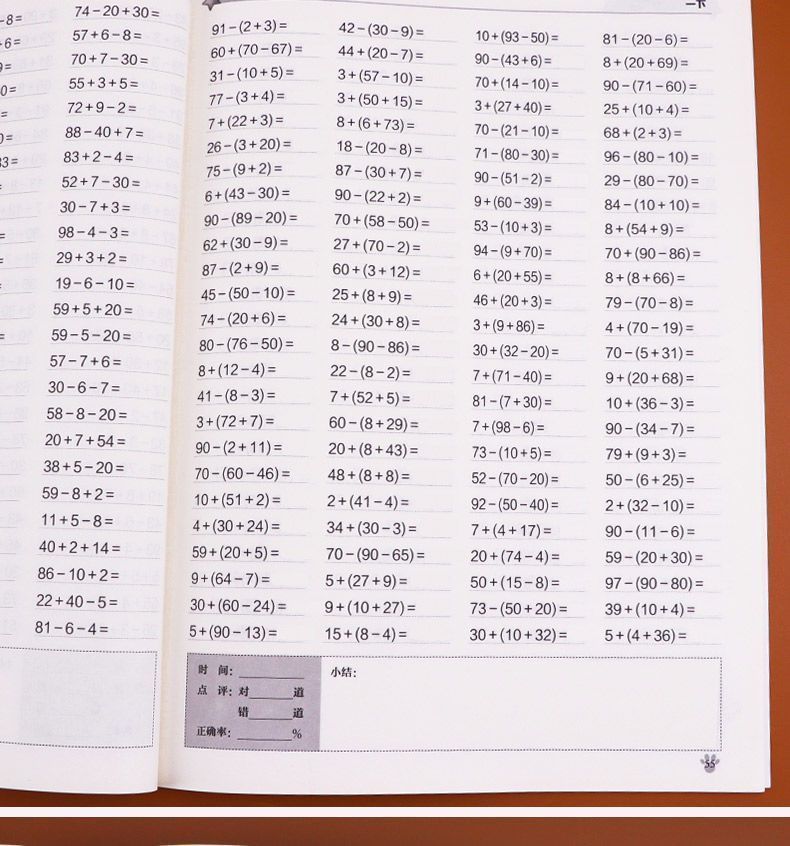 74－20＋30＝
57＋6－8＝
70＋7－30＝
55＋3＋5＝
72＋9－2＝
88－40＋7＝
83＋2－4＝
52＋7－30＝
30－7＋3＝
98－4－3＝
29＋3＋2＝
19－6－10＝
59＋5＋20＝
59－5－20＝
57－7＋6＝
30－6－7＝
58－8－20＝
20＋7＋54＝
38＋5－20＝
59－8＋2＝
11＋5－8＝
40＋2＋14＝
86－10＋2＝
22＋40－5＝
81－6－4＝
91－(2＋3)＝ 42－(30－9)＝ 10＋(93－50)＝ 81－(20－6)＝
60＋(70－67)＝ 44＋(20－7)＝ 90－(43＋6)＝ 8＋(20＋69)＝
31－(10＋5)＝ 3＋(57－10)＝ 70＋(14－10)＝ 90－(71－60)＝
77－(3＋4)＝ 3＋(50＋15)＝ 3＋(27＋40)＝ 25＋(10＋4)＝
7＋(22＋3)＝ 8＋(6＋73)＝ 70－(21－10)＝ 68＋(2＋3)＝
26－(3＋20)＝ 18－(20－8)＝ 71－(80－30)＝ 96－(80－10)＝
75－(9＋2)＝ 87－(30＋7)＝ 90－(51－2)＝ 29－(80－70)＝
6＋(43－30)＝ 90－(22＋2)＝ 9＋(60－39)＝ 84－(10＋10)＝
90－(89－20)＝ 70＋(58－50)＝ 53－(10＋3)＝ 8＋(54＋9)＝
62＋(30－9)＝ 27＋(70－2)＝ 94－(9＋70)＝ 70＋(90－86)＝
87－(2＋9)＝ 60＋(3＋12)＝ 6＋(20＋55)＝ 8＋(8＋66)＝
45－(50－10)＝ 25＋(8＋9)＝ 46＋(20＋3)＝ 79－(70－8)＝
74－(20＋6)＝ 24＋(30＋8)＝ 3＋(9＋86)＝ 4＋(70－19)＝
80－(76－50)＝ 8－(90－86)＝ 30＋(32－20)＝ 70－(5＋31)＝
8＋(12－4)＝ 22－(8－2)＝ 7＋(71－40)＝ 9＋(20＋68)＝
41－(8－3)＝ 7＋(52＋5)＝ 81－(7＋30)＝ 10＋(36－3)＝
3＋(72＋7)＝ 60－(8＋29)＝ 7＋(98－6)＝ 90－(34－7)＝
90－(2＋11)＝ 20＋(8＋43)＝ 73－(10＋5)＝ 79＋(9＋3)＝
70－(60－46)＝ 48＋(8＋8)＝ 52－(70－20)＝ 50－(6＋25)＝
10＋(51＋2)＝ 2＋(41－4)＝ 92－(50－40)＝ 2＋(32－10)＝
4＋(30＋24)＝ 34＋(30－3)＝ 7＋(4＋17)＝ 90－(11－6)＝
59＋(20＋5)＝ 70－(90－65)＝ 20＋(74－4)＝ 59－(20＋30)＝
9＋(64－7)＝ 5＋(27＋9)＝ 50＋(15－8)＝ 97－(90－80)＝
30＋(60－24)＝ 9＋(10＋27)＝ 73－(50＋20)＝ 39＋(10＋4)＝
5＋(90－13)＝ 15＋(8－4)＝ 30＋(10＋32)＝ 5＋(4＋36)＝
时 间：________ 小结：
点 评：对______道
错______道
正确率：________%
55